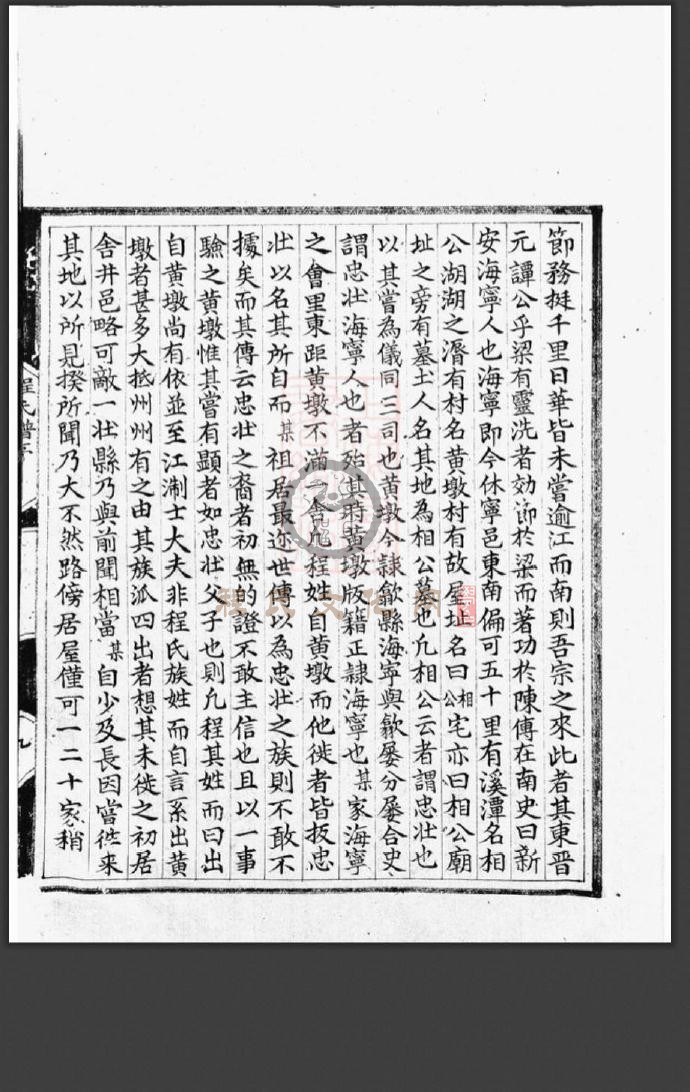 節務挺千里日華皆未嘗逾江而南則吾宗之來此者其東晋
元譚公乎梁有靈洗者効節於梁而著功於陳傳在南史曰新
安海寧人也海寧即今休寧邑東南偏可五十里有溪潭名相
公湖湖之濳有村名黄墩村有故屋址名曰相公宅亦曰相公廟
址之旁有墓土人名其地為相公墓也凢相公云者謂忠壮也
以其嘗為儀同三司也黄墩今隷歙縣海寧與歙屡分屡合史
謂忠壮海寧人也者殆其時黄墩版籍正隷海寧也某家海寧
之會里東距黄墩不滿一舍凢程姓自黄墩而他徙者皆扳忠
壮以名其所自而某祖居最迩世傳以為忠壮之族則不敢不
據矣而其傳云忠壮之裔者初無的證不敢主信也且以一事
驗之黄墩惟其嘗有顕者如忠壮父子也則凢程其姓而曰出
自黄墩尚有依並至江淛士大夫非程氏族姓而自言系出黄
墩者甚多大抵州州有之由其族派四出者想其未徙之初居
舍井邑略可敵一壮縣乃與前聞相當某自少及長因嘗徃来
其地以所見揆所聞乃大不然路傍居屋僅可一二十家稍
程氏譜
九
程氏文化網